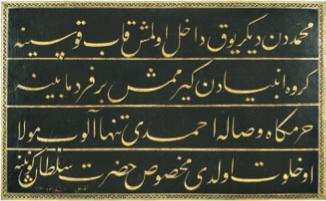 محمددن دیکر یوق داخل اولمش قاب قوسینه
کروه انبیادن کیرممش بر فرد مابینه
حرمکاه وصاله احمدی تنها آلوب مولا
او خلوت اولدی مخصوص حضرت سلطان کونینه